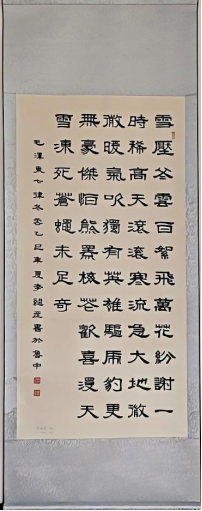 雪壓冬雲白絮飛萬花紛謝一
時稀高天滾滾寒流急大地微
微暖氣吹獨有英雄驅虎豹更
無豪傑怕熊羆梅花歡喜漫天
雪凍死蒼蠅未足奇
毛澤東七律冬雲乙巳年夏李書於魯中